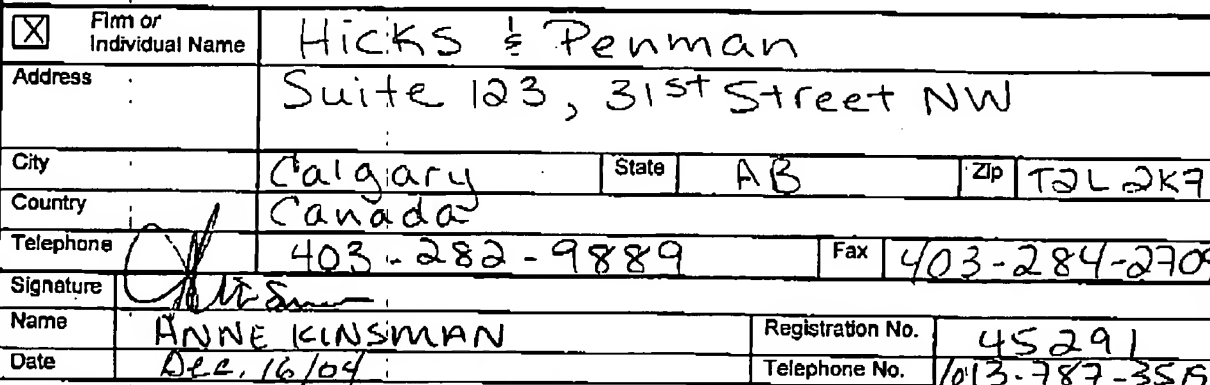 ☒ Firm or Individual Name Hicks & Penman
Address Suite 123, 31st Street NW
City Calgary State AB Zip T2L 2K7
Country Canada
Telephone 403-282-9889 Fax 403-284-2709
Signature
Name ANNE KINSMAN Registration No. 45291
Date Dec. 16/04 Telephone No.